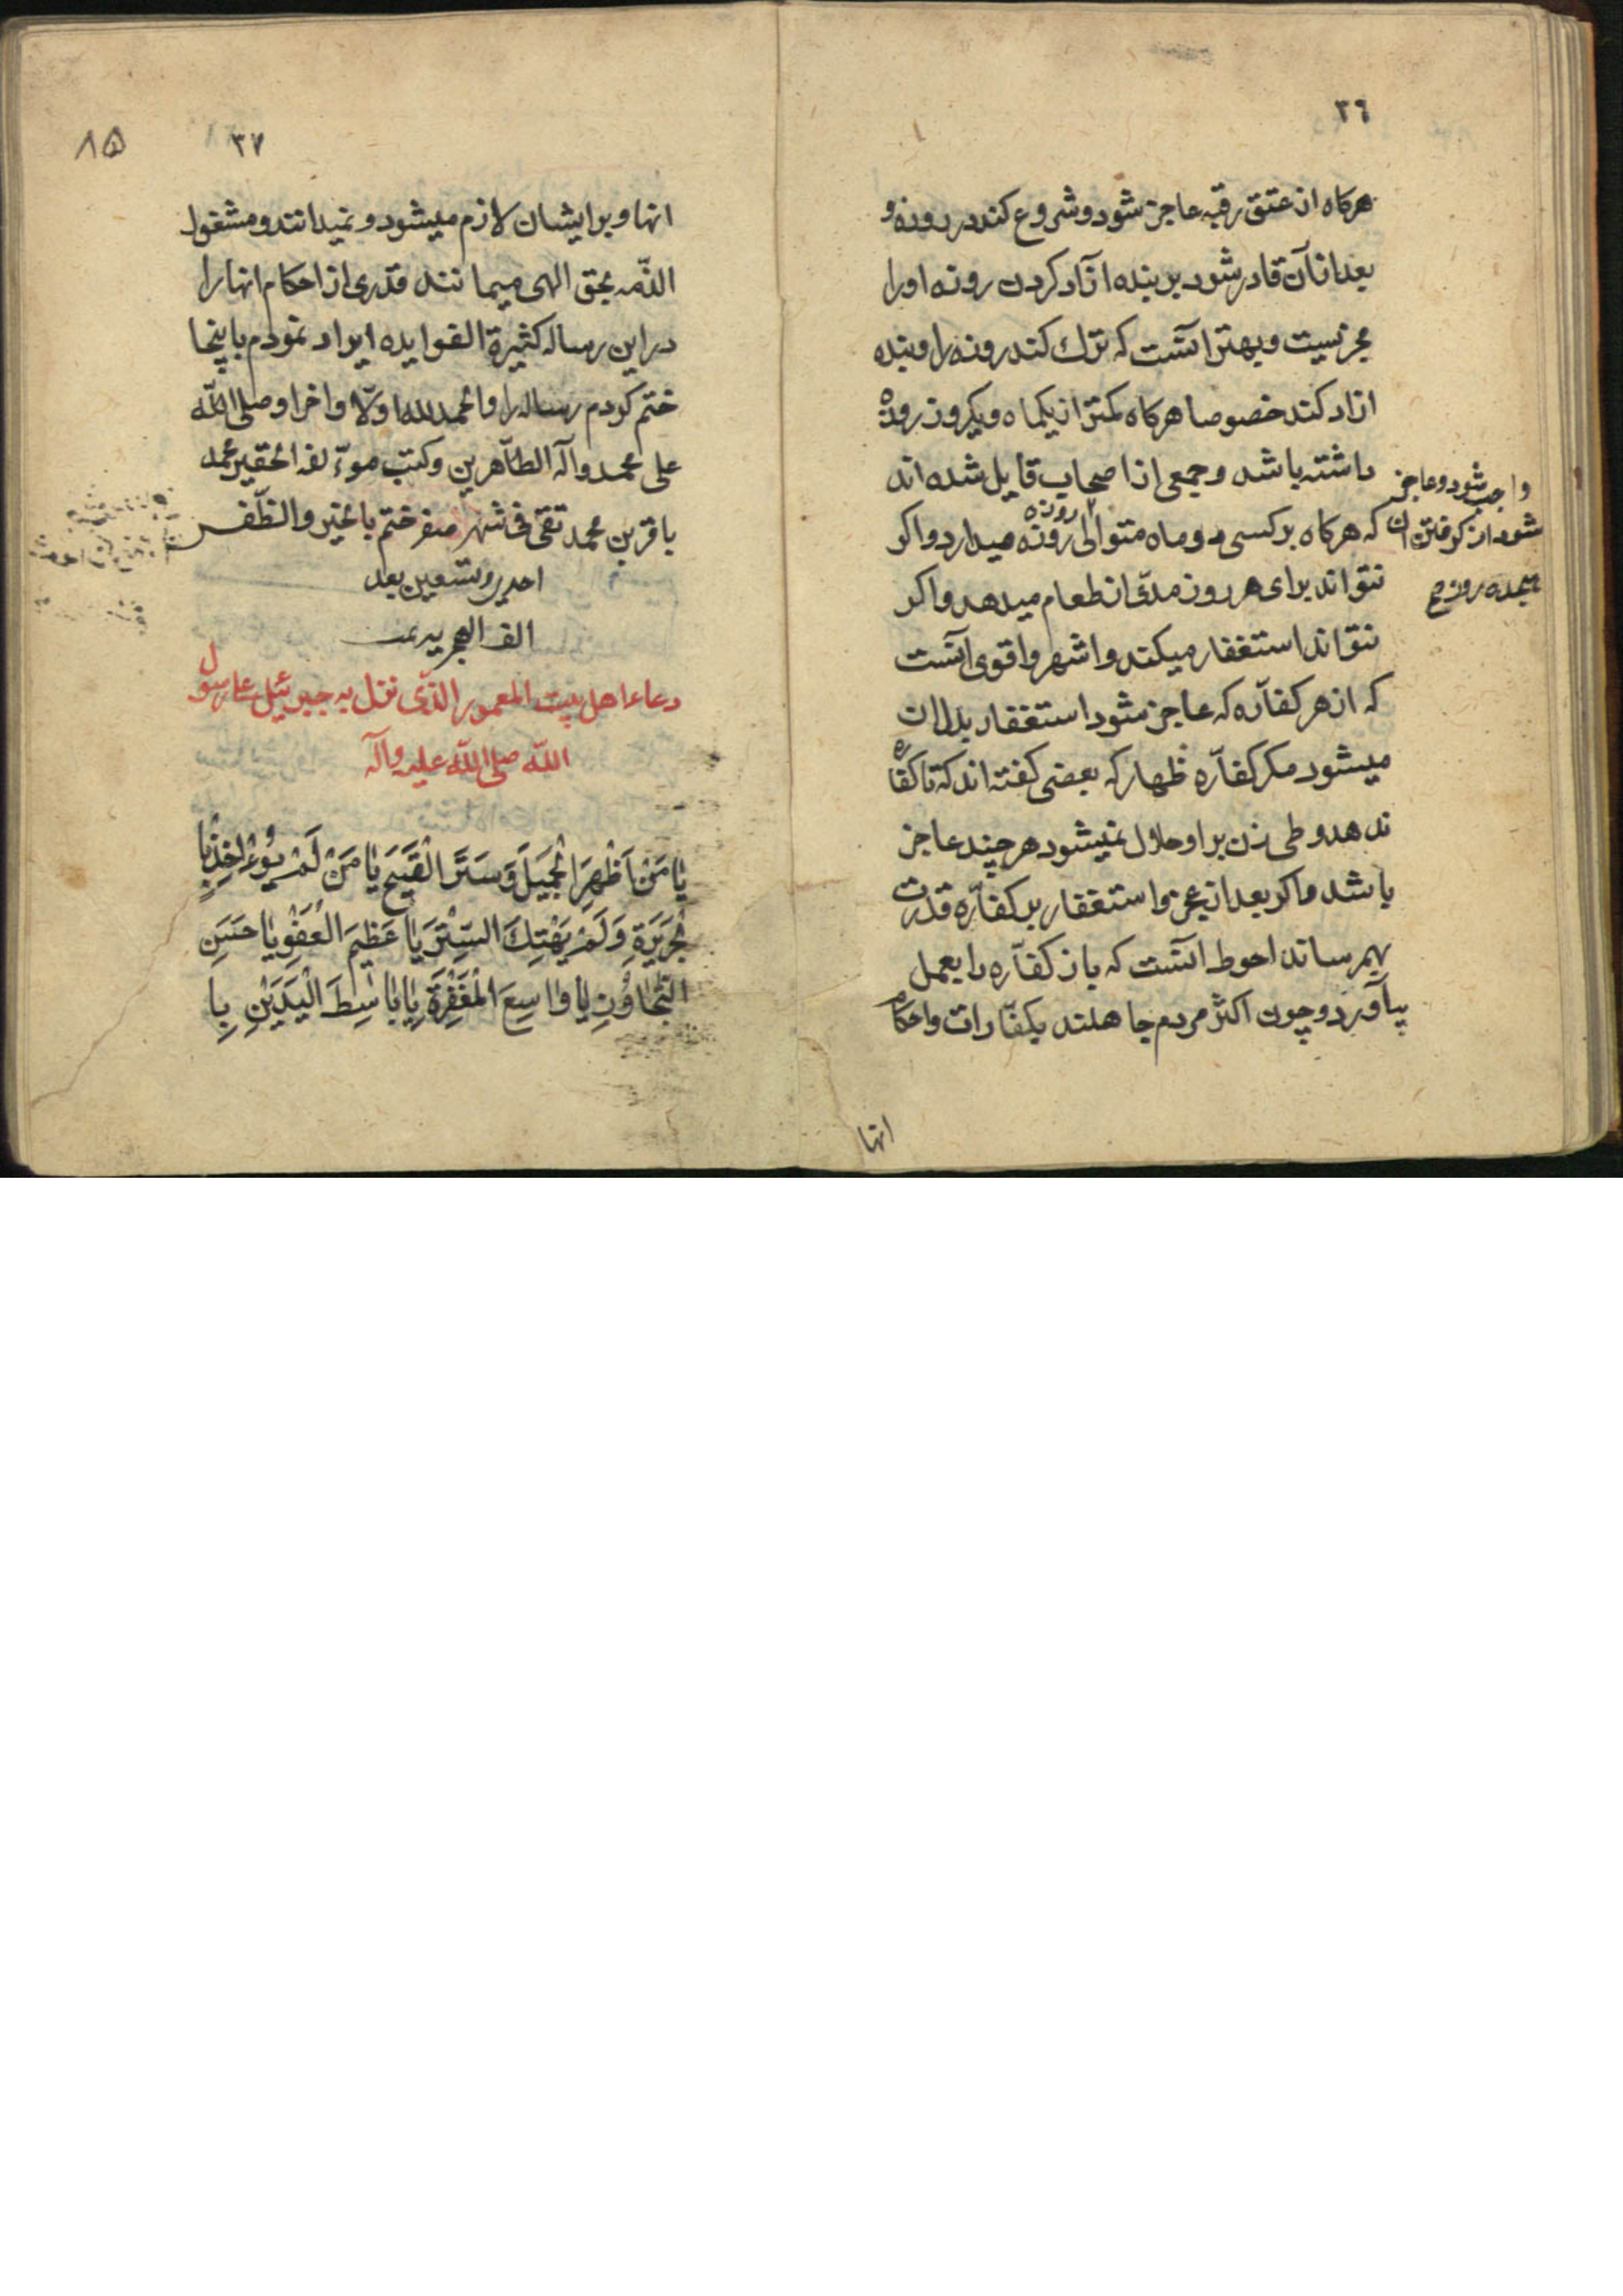 ٣٦
هرکاه از عتق رقبه عاجز شود و شروع کند در روزه و
بعد از آن قادر شود بر بنده ازاد کردن روزه او را
مجزیست و بهتر آنست که ترک کند روزه را و بنده
ازاد کند خصوصا هرکاه کمتر از یکماه و یکروز روزه
داشته باشد و جمعی از اصحاب قایل شده اند
که هرکاه بر کسی دو ماه متوالی روزه
واجب شود و عاجز
شود از کرفتن ان
هیجده روز
روزه میدارد و اکر
نتواند برای هر روز مدّی از طعام میدهد و اکر
نتواند استغفار میکند و اشهر و اقوی آنست
که از هر کفّاره که عاجز شود استغفار بدل ان
میشود مکر کفّاره ظهار که بعضی کفته اند که تا کفاره
ندهد وطی زن بر او حلال نمیشود هر چند عاجز
باشد و اکر بعد از عجز و استغفار بر کفّاره قدرت
بهم رساند احوط آنست که باز کفّاره را بعمل
بیآورد و چون اکثر مردم جاهلند بکفّارات و احکام
انها
٣٧
٨۵
انها و بر ایشان لازم میشود و نمیدانند و مشغول
الذّمه بحق الهی میمانند قدری از احکام انها را
در این رساله کثیرة الفوایده ایراد نمودم باینجا
ختم کردم رساله را و الحمد لله اولّا و اخرا و صلی اللّه
علی محمد و آله الطاّهرین و کتب موءّلفه الحقیر محمد
باقر بن محمد تقی فی شهر صفر ختم بالخیر و الظّفر
احدی و تسعین بعد
الف الهجریه
دعاء اهل بیت المعمور الذّی نزل به جبرئیل علی رسول
اللّه صلی اللّه علیه وآله
یٰا مَنْ اَظْهَرَ الْجَمیٖلَ وَ سَتَرَ الْقَبیٖحَ یٰا مَنْ لَمْ یُؤٰاخِذْ بِا
لْجَریٖرَةِ وَ لَمْ یَهْتِكَ السِّتْرَ یٰا عَظیٖمَ الْعَفْوِ یٰا حَسَنَ
التَّجٰاوُزِ یٰا وٰاسِعَ الْمَغْفِرَةِ یٰا بٰاسِطَ الْیَدَیْنِ بِا